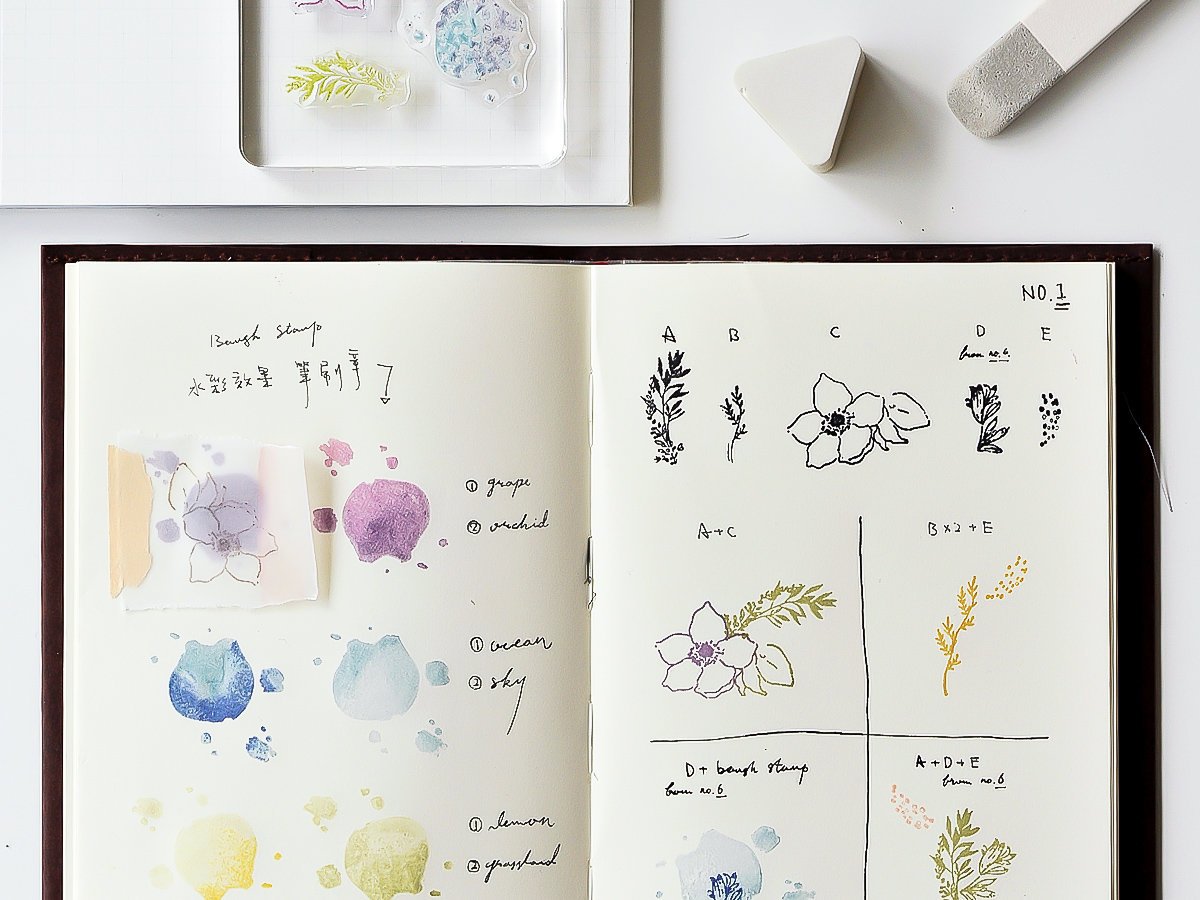 Baugh Stamp
水彩效果 筆刷章
① grape
② orchid
① ocean
② sky
① lemon
② grassland
NO.1
A B C D E
from no.6.
A+C
B×2+E
D+ baugh stamp
from no.6
A+D+E
from no.6